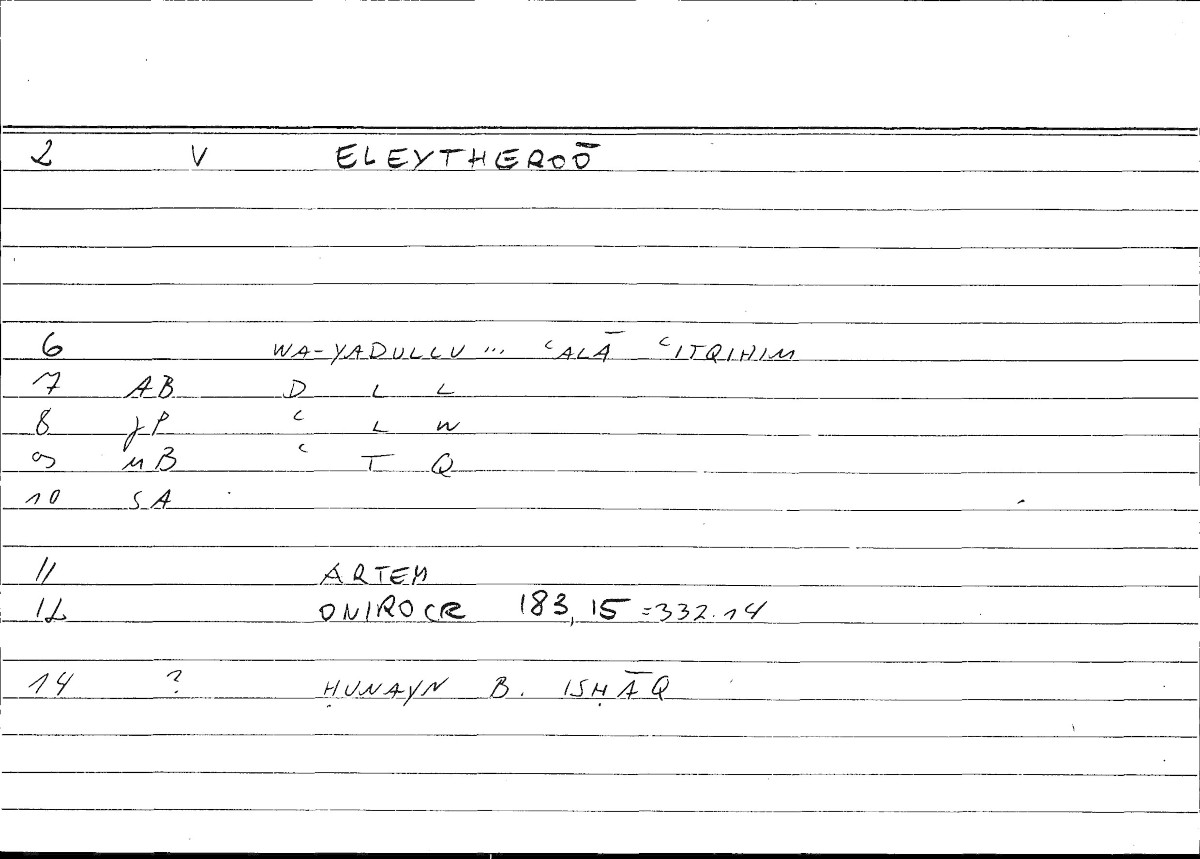 2 V ELEYTHEROŌ
6 WA-YADULLU ... ʿALĀ ʿITQIHIM
7 AB D L L
8 P ʿ L W
9 B ʿ T Q
10 SA
11 ARTEM
12 ONIROCR 183,15=332.14
14 ? ḤUNAYN B. ISḤĀQ